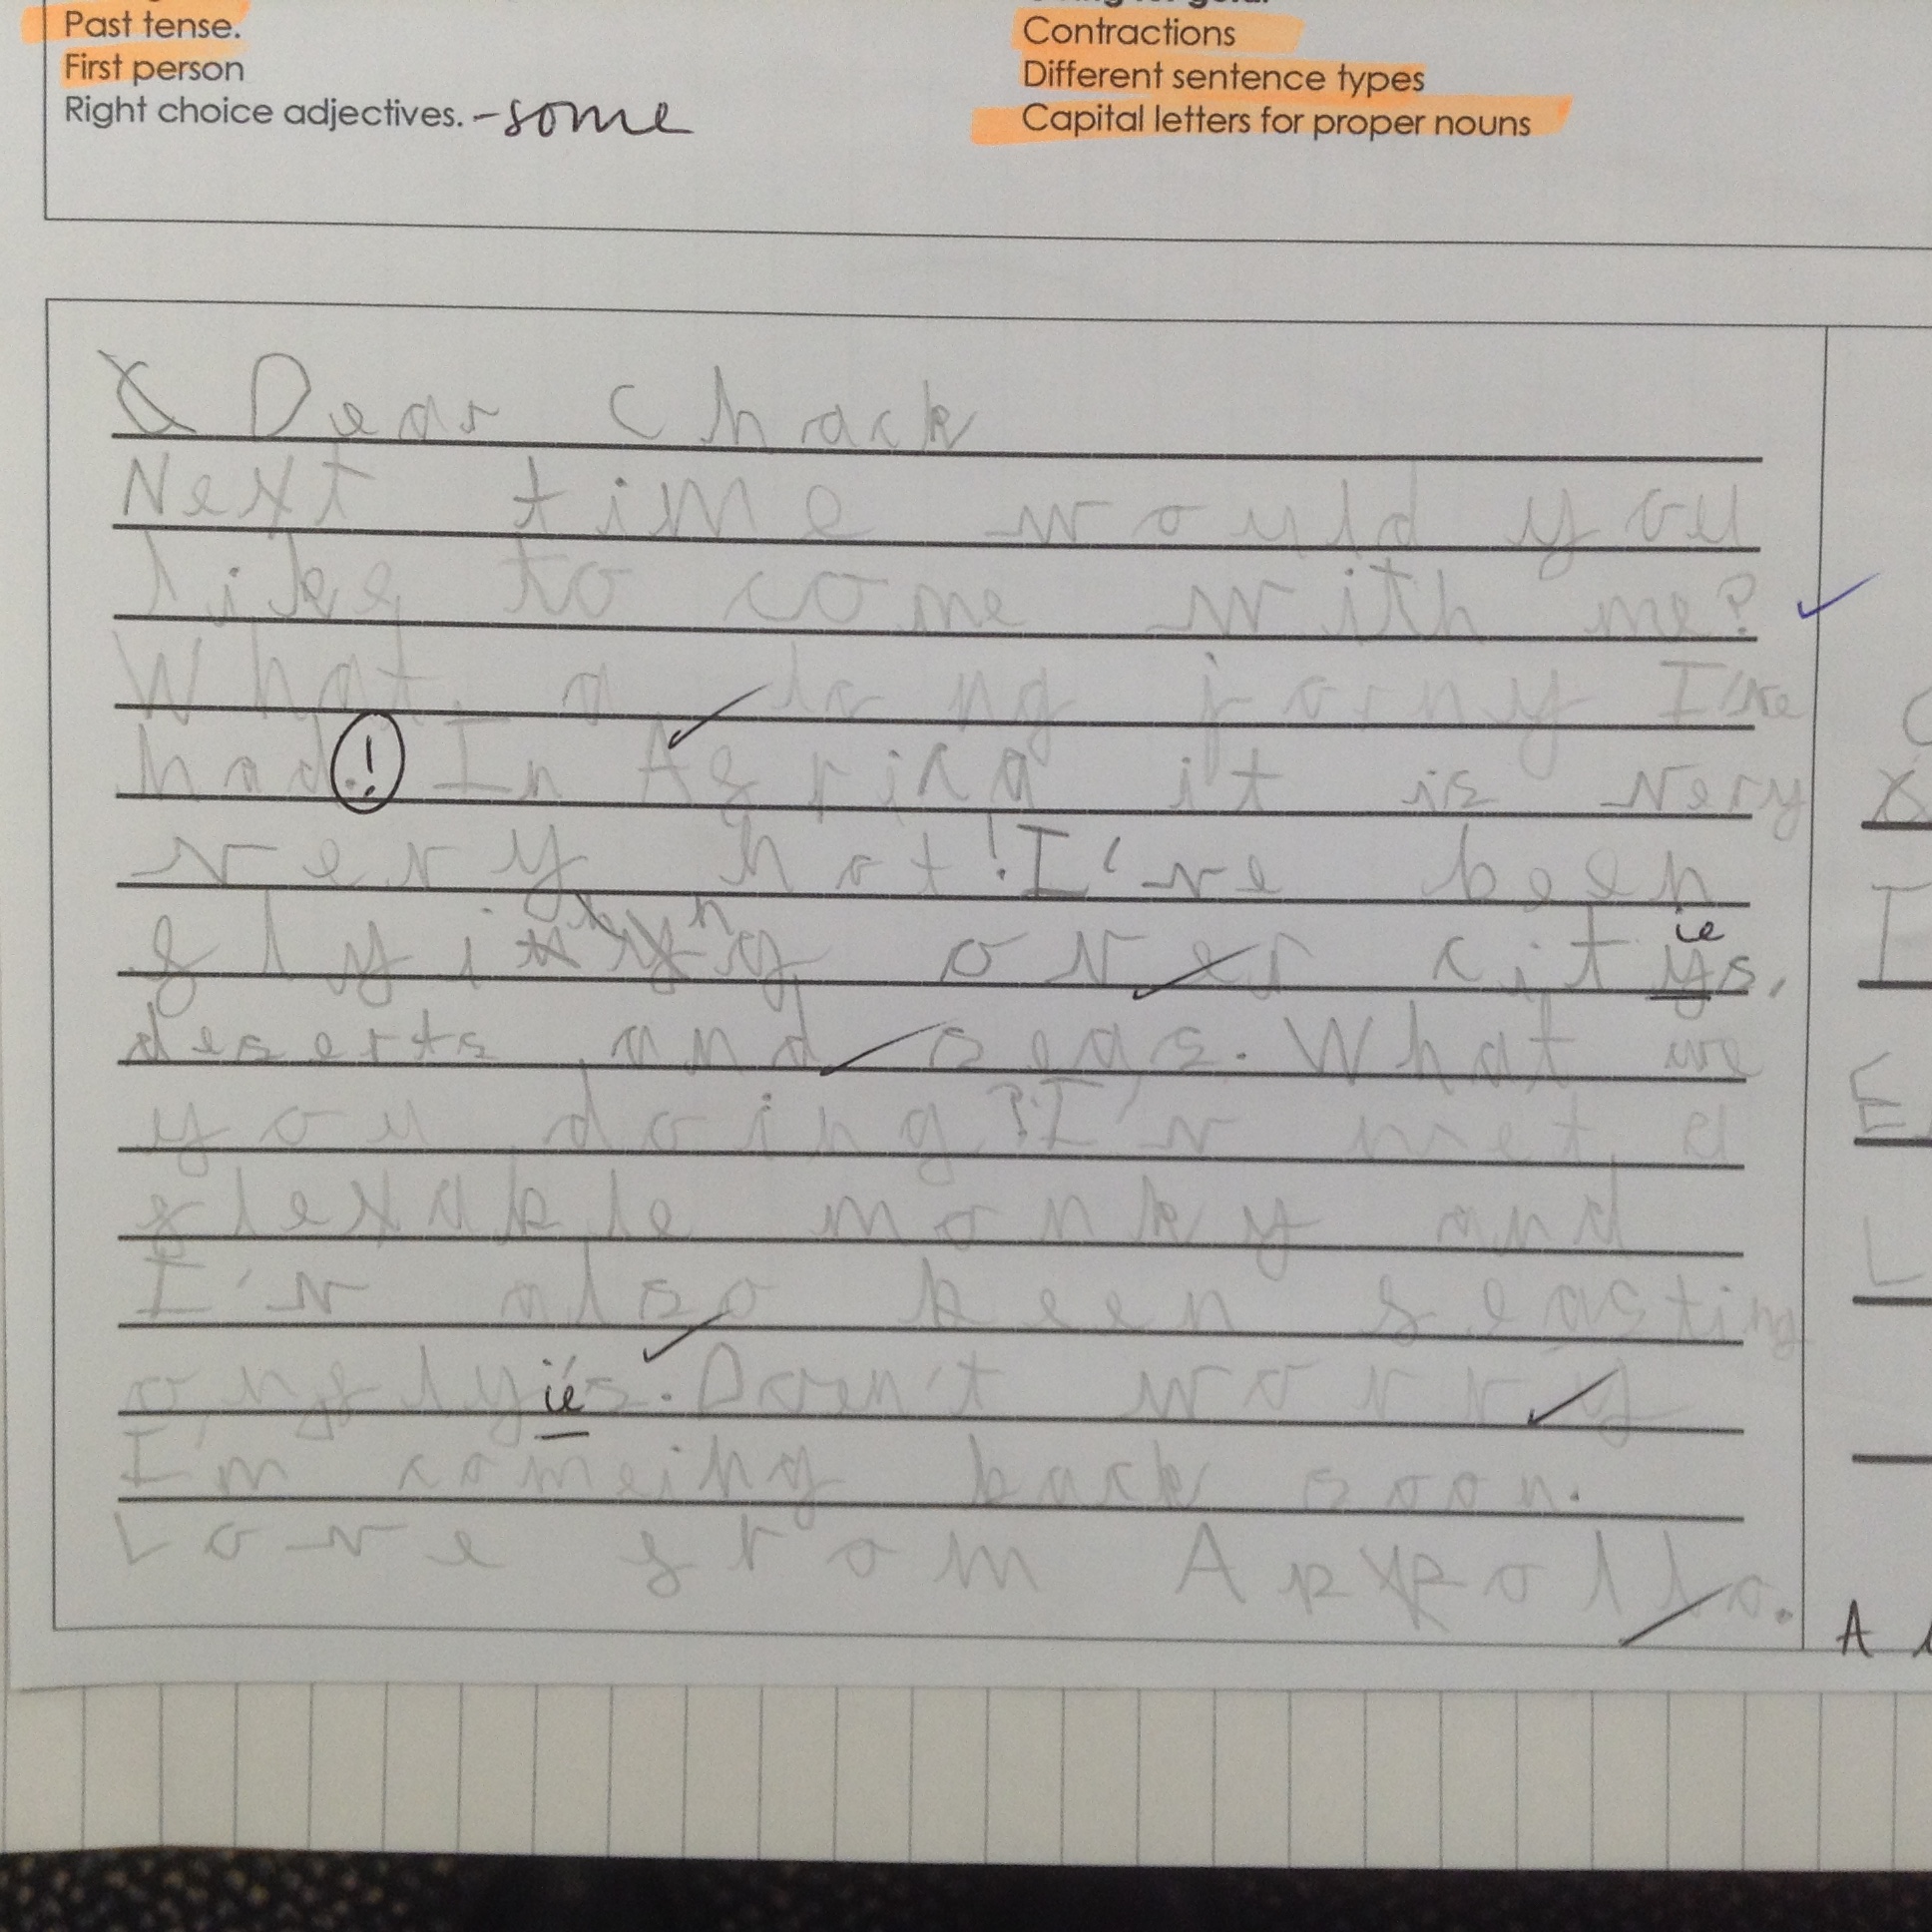 Past tense.
First person
Right choice adjectives. - some
Contractions
Different sentence types
Capital letters for proper nouns
Dear Chack
Next time would you
like to come with me?
What a long jorny I've
had! In Africa it is very
very hot! I've been
flying over citys,
deserts and seas. What are
you doing? I'v met a
flexable monky and
I'v also been feasting
on
Doen't worry
I'm comeing back soon.
Love from Appollo.